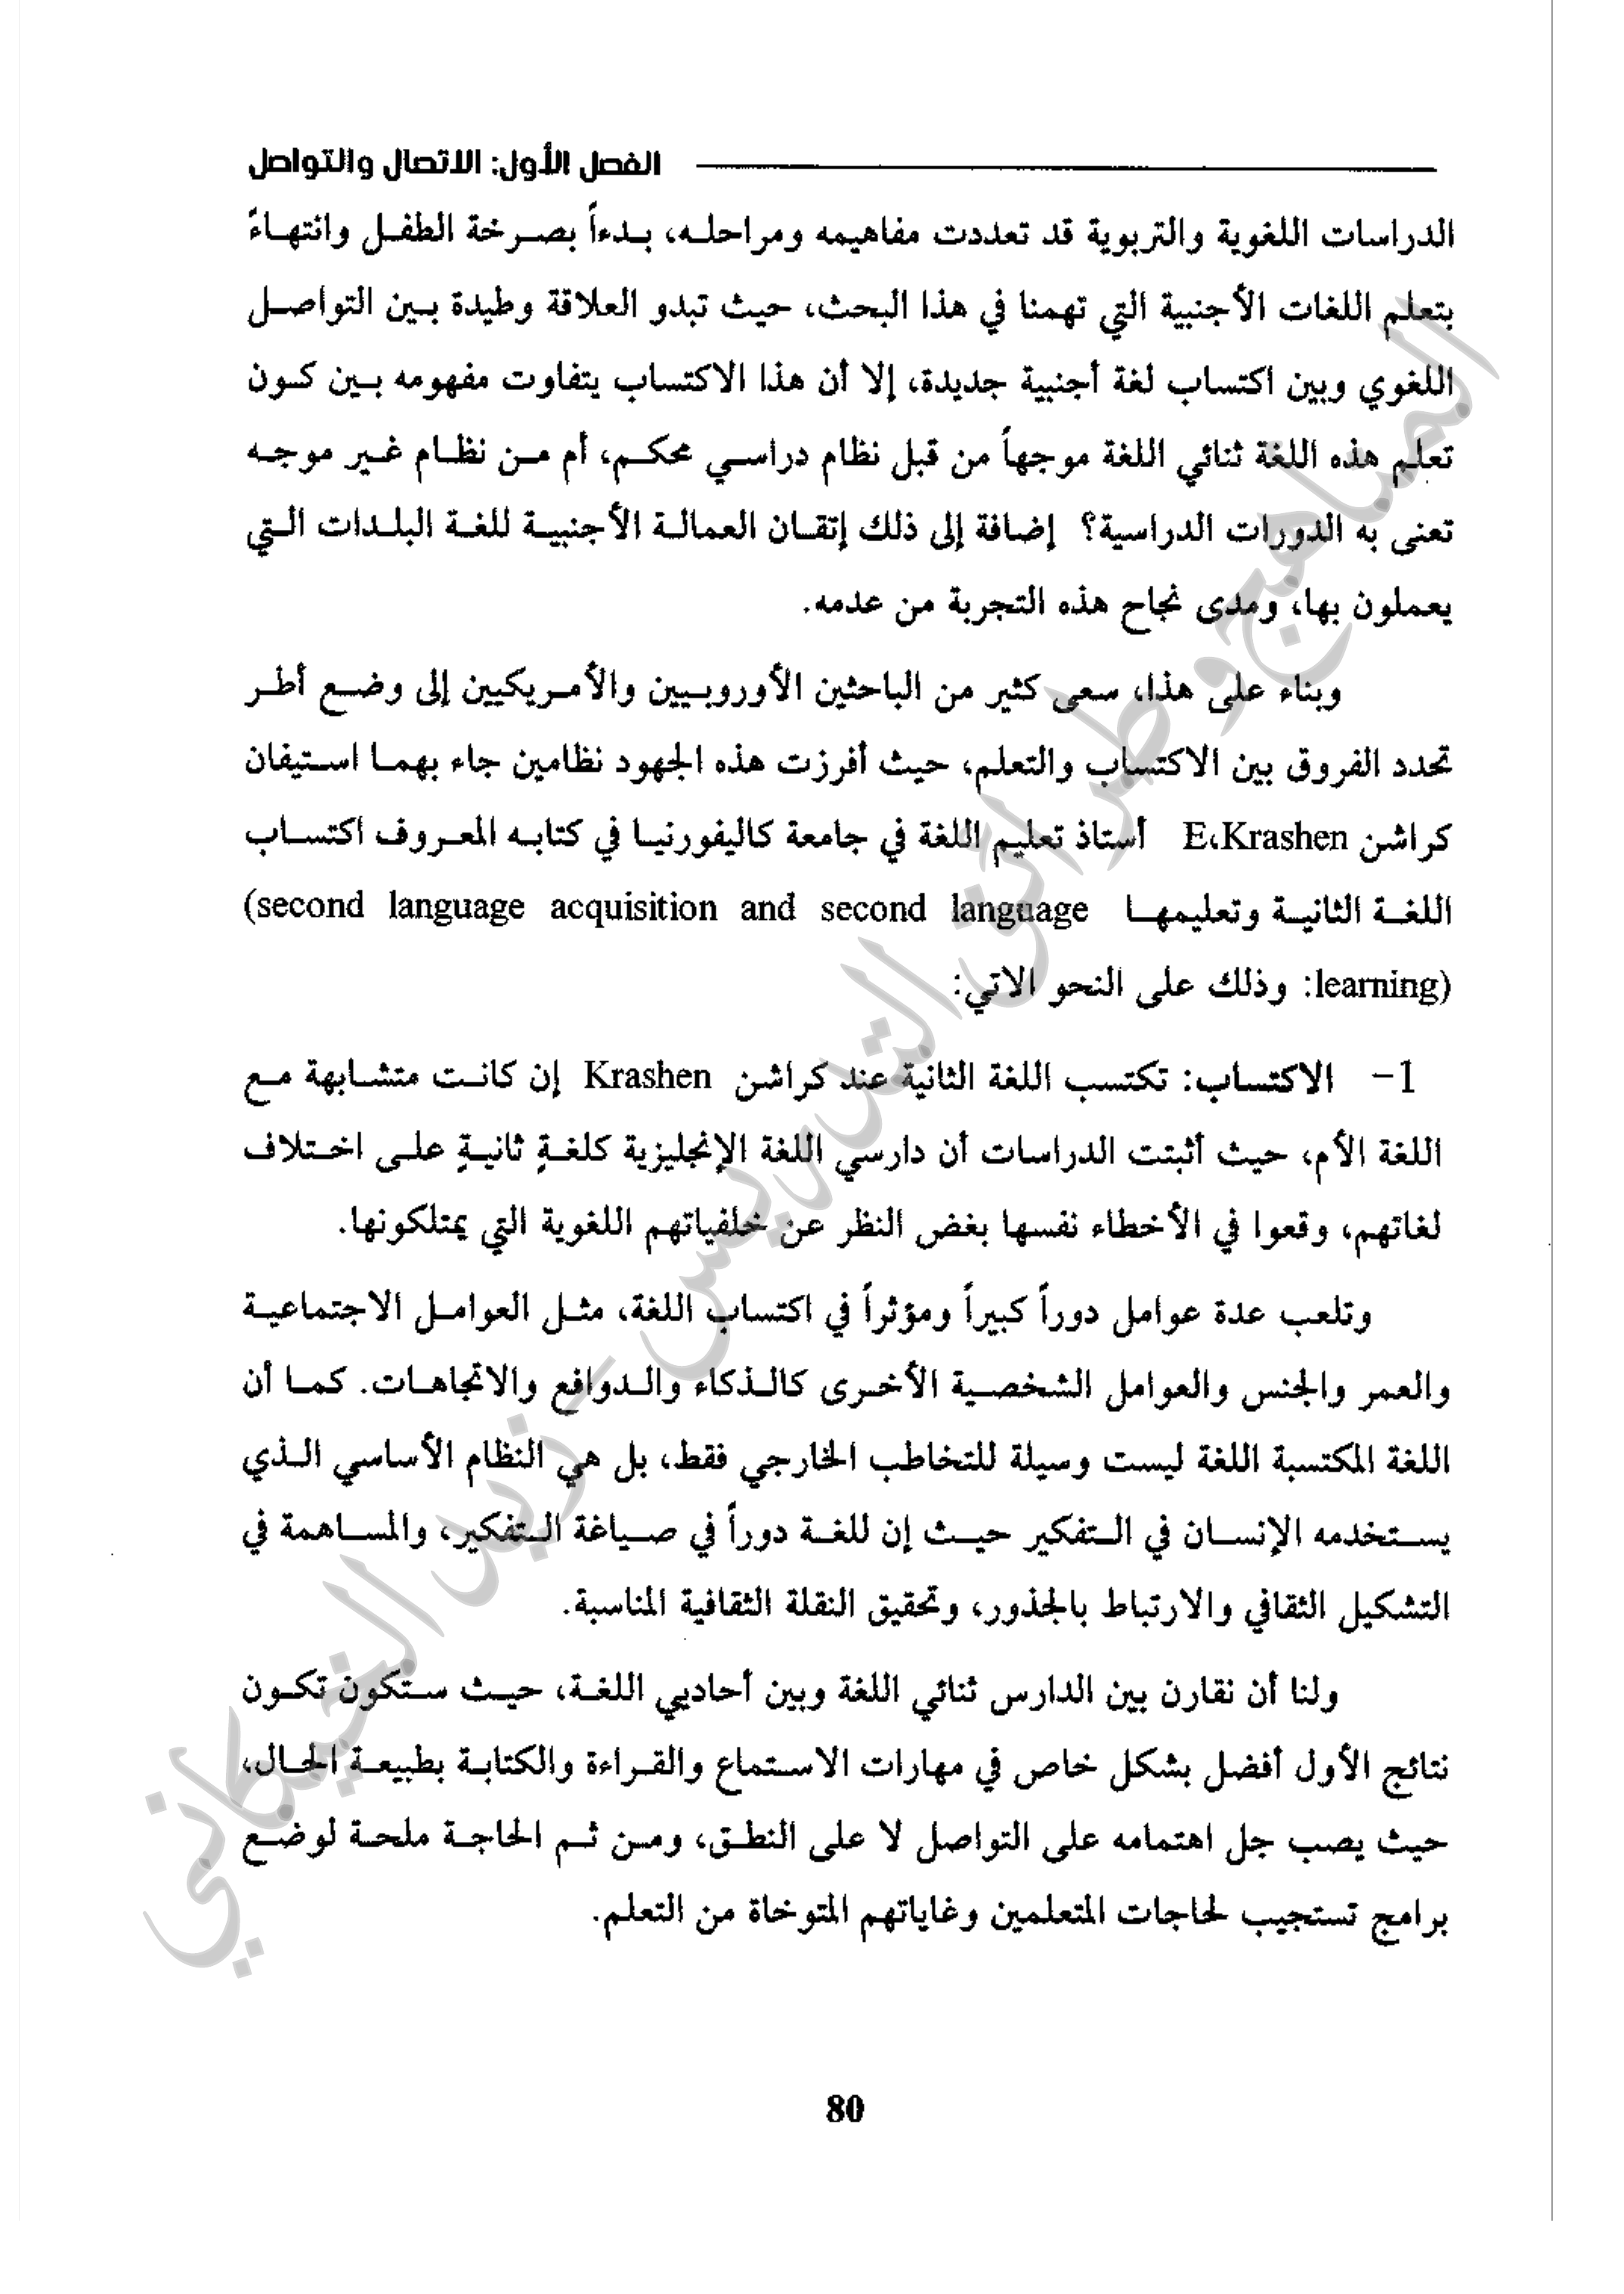 الفصل الأول: الاتصال والتواصل
الدراسات اللغوية والتربوية قد تعددت مفاهيمه ومراحله، بدءاً بصرخة الطفل وانتهاءً
بتعلم اللغات الأجنبية التي تهمنا في هذا البحث، حيث تبدو العلاقة وطيدة بين التواصل
اللغوي وبين اكتساب لغة أجنبية جديدة، إلا أن هذا الاكتساب يتفاوت مفهومه بين كون
تعلم هذه اللغة ثنائي اللغة موجهاً من قبل نظام دراسي محكم، أم من نظام غير موجه
تعنى به الدورات الدراسية؟ إضافة إلى ذلك إتقان العمالة الأجنبية للغة البلدات التي
يعملون بها، ومدى نجاح هذه التجربة من عدمه.
وبناء على هذا، سعى كثير من الباحثين الأوروبيين والأمريكيين إلى وضع أطر
تحدد الفروق بين الاكتساب والتعلم، حيث أفرزت هذه الجهود نظامين جاء بهما استيفان
كراشن E،Krashen أستاذ تعليم اللغة في جامعة كاليفورنيا في كتابه المعروف اكتساب
اللغة الثانية وتعليمها (second language acquisition and second language
learning): وذلك على النحو الاتي:
1- الاكتساب: تكتسب اللغة الثانية عند كراشن Krashen إن كانت متشابهة مع
اللغة الأم، حيث أثبتت الدراسات أن دارسي اللغة الإنجليزية كلغةٍ ثانيةٍ على اختلاف
لغاتهم، وقعوا في الأخطاء نفسها بغض النظر عن خلفياتهم اللغوية التي يمتلكونها.
وتلعب عدة عوامل دوراً كبيراً ومؤثراً في اكتساب اللغة، مثل العوامل الاجتماعية
والعمر والجنس والعوامل الشخصية الأخرى كالذكاء والدوافع والاتجاهات. كما أن
اللغة المكتسبة اللغة ليست وسيلة للتخاطب الخارجي فقط، بل هي النظام الأساسي الذي
يستخدمه الإنسان في التفكير حيث إن للغة دوراً في صياغة التفكير، والمساهمة في
التشكيل الثقافي والارتباط بالجذور، وتحقيق النقلة الثقافية المناسبة.
ولنا أن نقارن بين الدارس ثنائي اللغة وبين أحاديي اللغة، حيث ستكون تكون
نتائج الأول أفضل بشكل خاص في مهارات الاستماع والقراءة والكتابة بطبيعة الحال،
حيث يصب جل اهتمامه على التواصل لا على النطق، ومن ثم الحاجة ملحة لوضع
برامج تستجيب لحاجات المتعلمين وغاياتهم المتوخاة من التعلم.
80
المناهج وطرائق التدريس - زيد الخيكاني